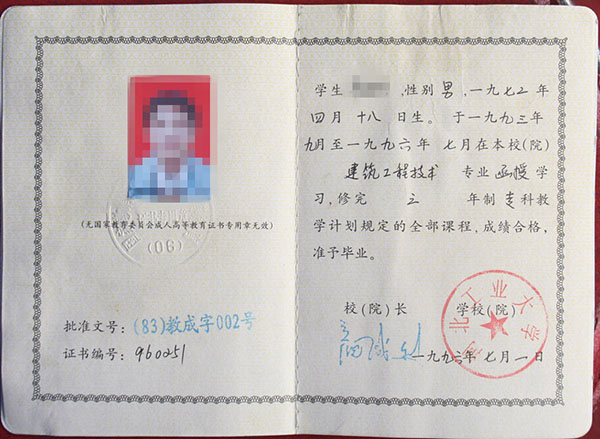 (无国家教育委员会成人高等教育证书专用章无效)
(06)
批准文号：(83)教成字002号
证书编号：960251
学生 ,性别男,一九七二年
四月十八日生。于一九九三年
九月至一九九六年 七月在本校(院)
建筑工程技术 专业函授学
习,修完 三 年制专科教
学计划规定的全部课程,成绩合格,
准予毕业。
校(院)长 学校(院)
一九九六年七月一日
北工业大学